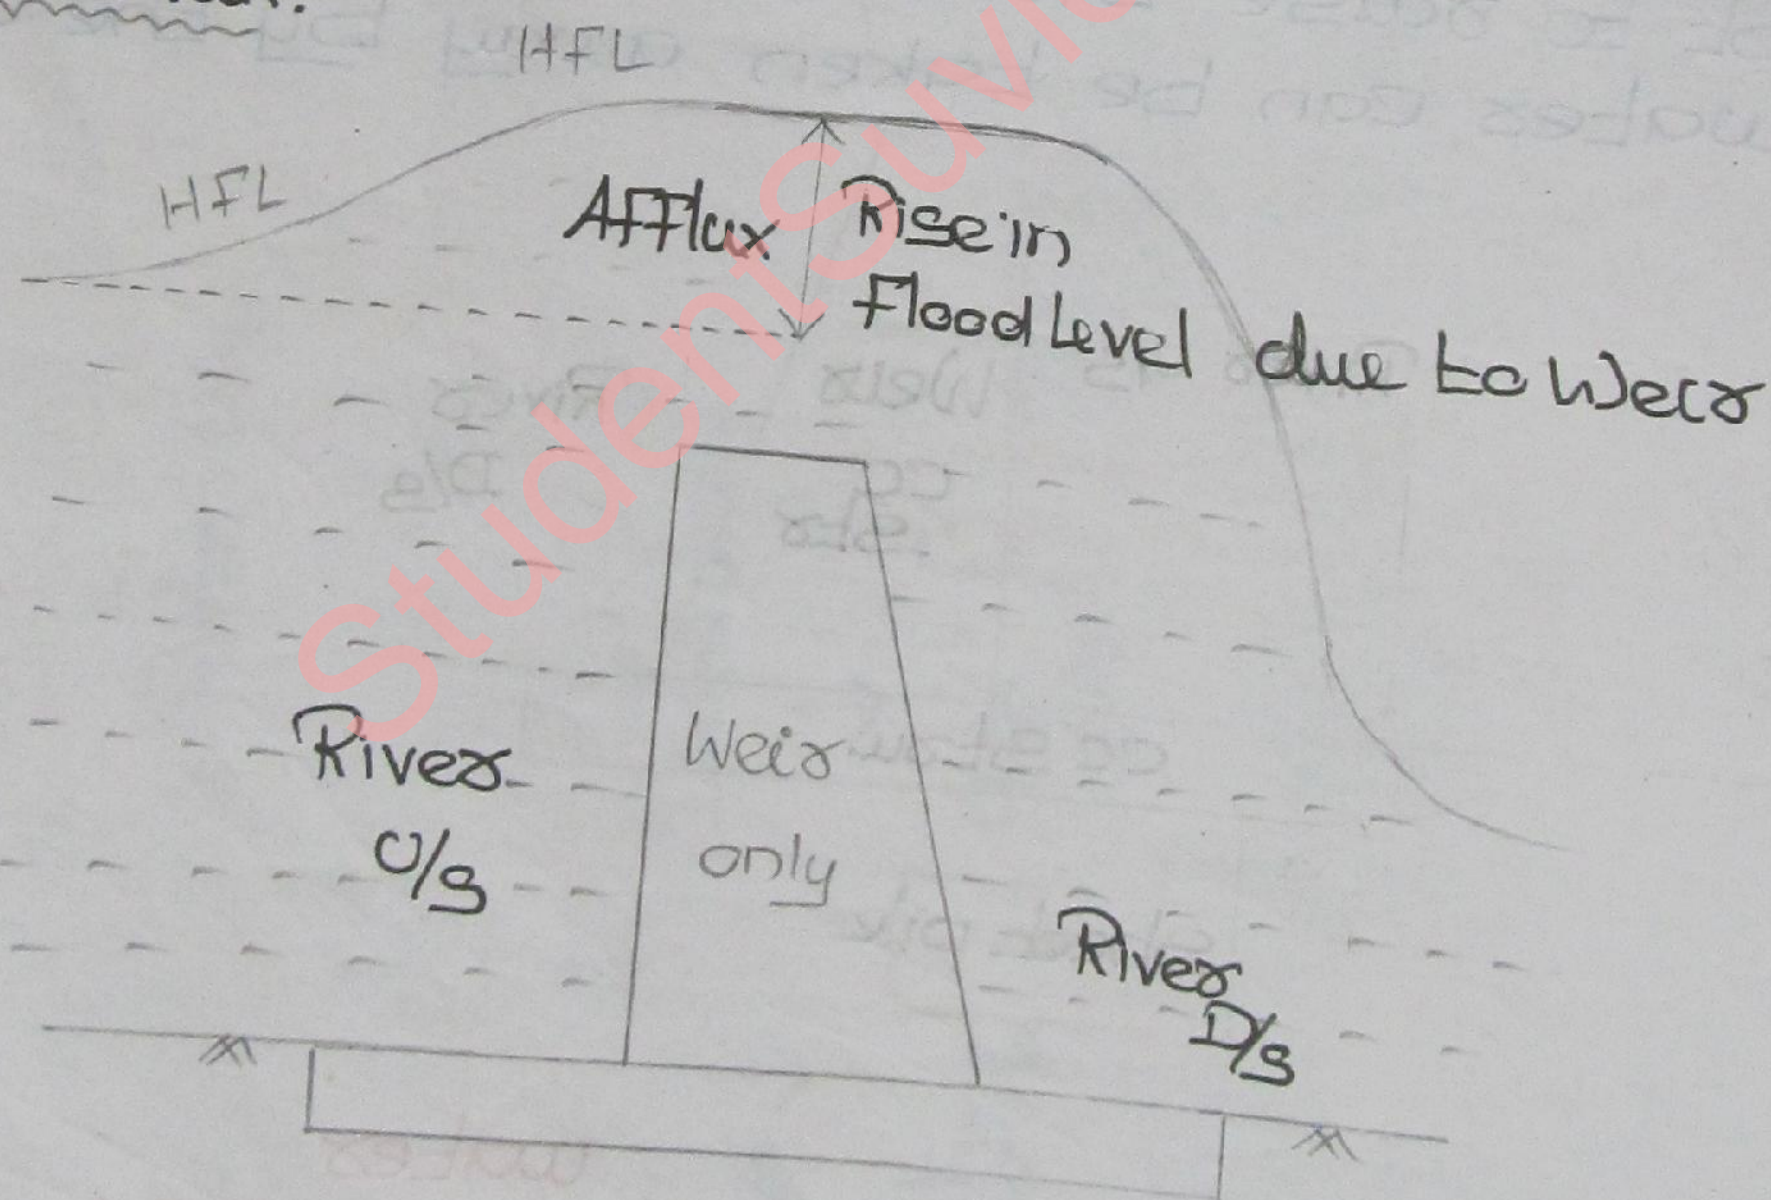 HFL
HFL
Afflux
Rise in
flood Level due to Weir
Weir
only
River
U/s
River
D/s
StudentSuvi